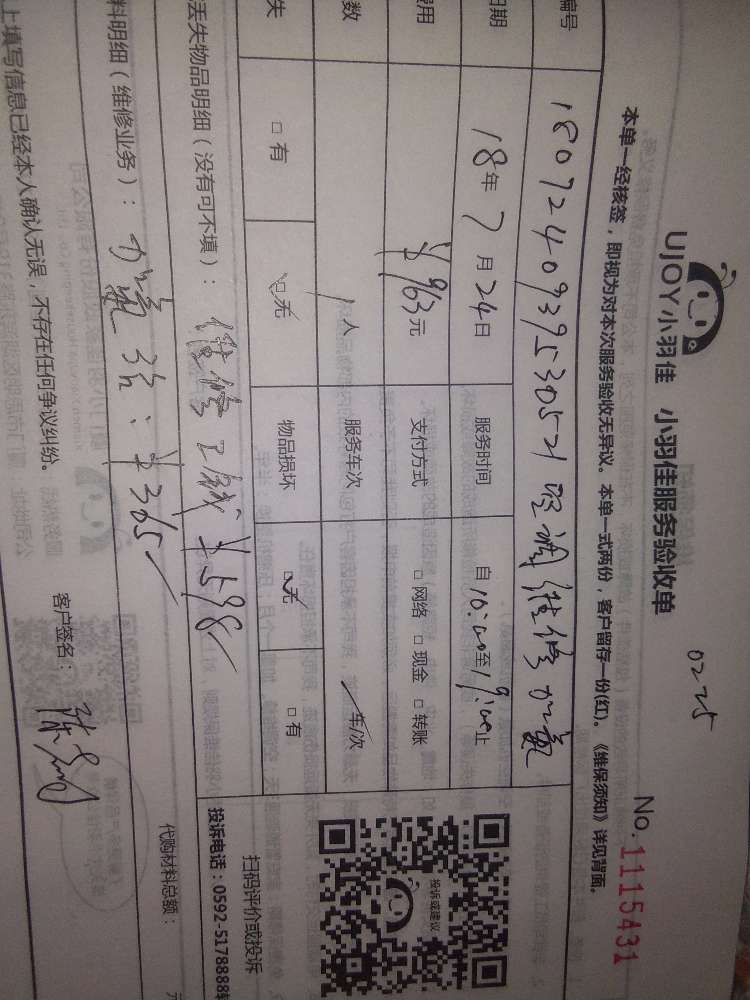 0225
UJOY小羽佳 小羽佳服务验收单 No. 1115431
本单一经核签，即视为对本次服务验收无异议。本单一式两份，客户留存一份(红)。《维保须知》详见背面。
编号 180724093953052 空调维修加氟
日期 18年7月24日 服务时间 自10:00至19:00止
费用 ¥963元 支付方式 □网络 □现金 □转账
数 人 服务车次 车/次
失 □有 □无 物品损坏 □无 □有
丢失物品明细（没有可不填）： 维修工钱 ¥598
料明细（维修业务）： 加氟 ¥365
代购材料总额： 元
上填写信息已经本人确认无误，不存在任何争议纠纷。
客户签名：
投诉或建议
扫码评价或投诉
投诉电话：0592-5178888转